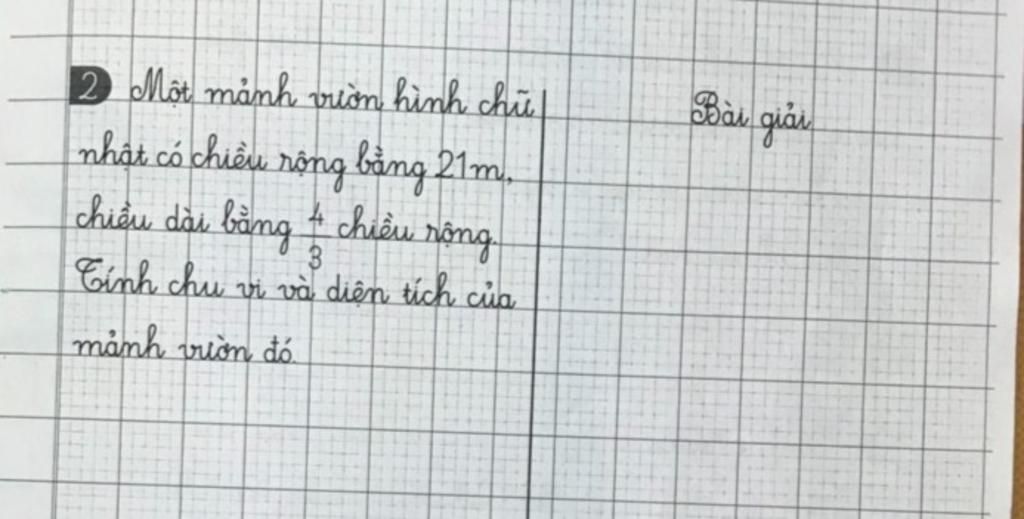 2 Một mảnh vườn hình chữ
nhật có chiều rộng bằng 21m,
chiều dài bằng 4/3 chiều rộng.
Tính chu vi và diện tích của
mảnh vườn đó.
Bài giải